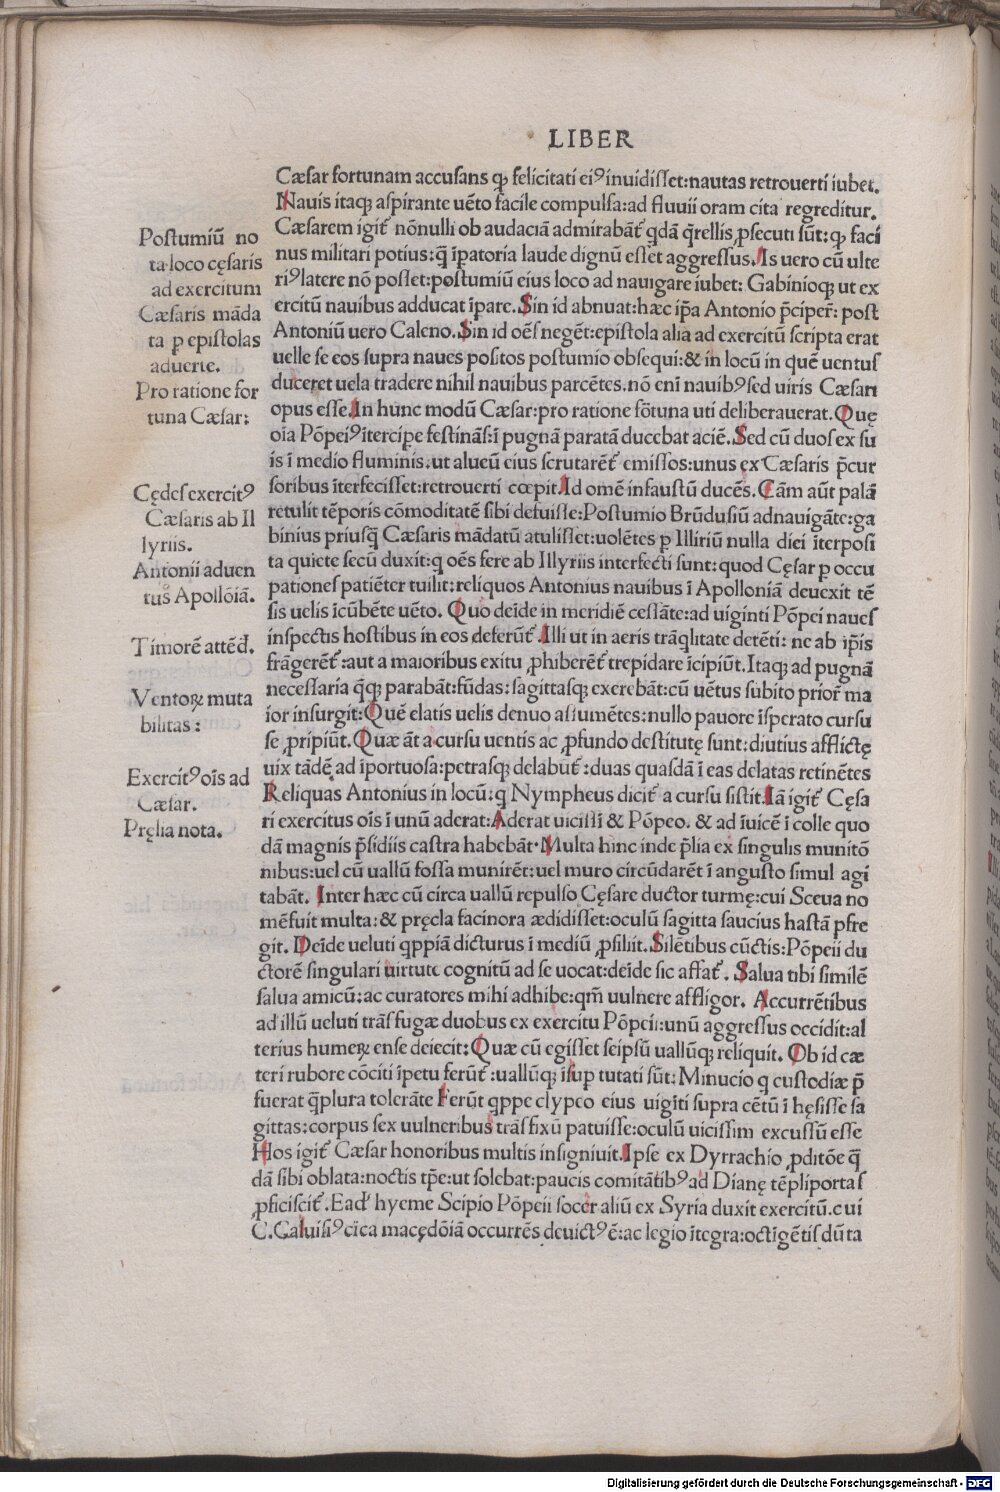 LIBER
Cæſar fortunam accuſans ꝙ felicitati eiꝰ inuidiſſet:nautas retrouerti iubet.
Nauis itaqꝫ aſpirante uēto facile compulſa:ad fluuii oram cita regreditur.
Cæſarem igit᷑ nōnulli ob audaciā admirabāt᷑ qdā q̄rellis ꝓſecuti ſūt:ꝙ faci
nus militari potius:q̄ īpatoria laude dignū eſſet aggreſſus.Is uero cū ulte
riꝰ latere nō poſſet:poſtumiū eius loco ad nauigare iubet: Gabinioqꝫ ut ex
ercitū nauibus adducat īpare.Sin id abnuat:hæc ip̄a Antonio p̄ciper̄: poſt
Antoniū uero Caleno.Sin id oēſ negēt:epiſtola alia ad exercitū ſcripta erat
uelle ſe eos ſupra naues poſitos poſtumio obſequi:& in locū in quē uentuſ
duceret uela tradere nihil nauibus parcētes.nō enī nauibꝰ ſed uiris Cæſari
opus eſſe.In hunc modū Cæſar:pro ratione fōtuna uti deliberauerat.Quę
oīa Pōpeiꝰ īterciꝑe feſtināſ:ī pugnā paratā ducebat aciē.Sed cū duoſ ex ſu
is ī medio fluminis.ut alueū eius ſcrutarēt᷑ emiſſos:unus ex Cæſaris p̄cur
ſoribus īterfeciſſet:retrouerti cœpit.Id omē infauſtū ducēs.Cām aūt palā
retulit tēporis cōmoditatē ſibi defuiſſe:Poſtumio Brūduſiū adnauigāte:ga
binius priuſq̄ Cæſaris mādatū atuliſſet:uolētes ꝑ Illiriū nulla diei īterpoſi
ta quiete ſecū duxit:q oēs fere ab Illyriis interfecti ſunt:quod Cęſar ꝑ occu
pationeſ patiēter tuilit:reliquos Antonius nauibus ī Apolloniā deuexit tē
ſis uelis icūbēte uēto. Quo deīde in meridiē ceſſāte:ad uiginti Pōpei naueſ
inſpectis hoſtibus in eos deferūt᷑.Illi ut in aeris trāqlitate detēti: ne ab ip̄is
frāgerēt᷑:aut a maioribus exitu ꝓhiberēt᷑ trepidare īcipiūt.Itaqꝫ ad pugnā
neceſſaria q̄qꝫ parabāt:fūdas:ſagittaſqꝫ exerebāt:cū uētus ſubito prior̄ ma
ior inſurgit:Quē elatis uelis denuo aſſumētes:nullo pauore iſperato curſu
ſe ꝓripiūt.Quæ āt a curſu uentis ac ꝓfundo deſtitutę ſunt:diutius afflictę
uix tādē ad īportuoſa:petraſqꝫ delabūt᷑:duas quaſdā ī eas delatas retinētes
Reliquas Antonius in locū:q Nympheus dicit᷑ a curſu ſiſtit.Iā igit᷑ Cęſa
ri exercitus oīs ī unū aderat:Aderat uiciſſī & Pōpeo. & ad īuicē ī colle quo
dā magnis p̄ſidiis caſtra habebāt.Multa hinc inde p̄lia ex ſingulis munitō
nibus:uel cū uallū foſſa munirēt:uel muro circūdarēt ī anguſto ſimul agi
tabāt. Inter hæc cū circa uallū repulſo Cęſare ductor turmę:cui Sceua no
mē fuit multa:& pręcla facinora ædidiſſet:oculū ſagitta ſaucius haſtā ꝑfre
git. Deīde ueluti qppiā dicturus ī mediū ꝓſiliit.Silētibus cūctis:Pōpeii du
ctorē ſingulari uirtute cognitū ad ſe uocat:deīde ſic affat᷑. Salua tibi ſimilē
ſalua amicū:ac curatores mihi adhibe:qm̄ uulnere affligor. Accurrētibus
ad illū ueluti trāſfugæ duobus ex exercitu Pōpeii:unū aggreſſus occidit:al
terius humeꝝ enſe deiecit:Quæ cū egiſſet ſeipſū uallūqꝫ reliquit. Ob id cæ
teri rubore cōciti īpetu ferūt᷑:uallūqꝫ iſuꝑ tutati ſūt:Minucio q cuſtodiæ p̄
fuerat q̄plura tolerāte Ferūt qppe clypeo eius uigīti ſupra cētū ī hęſiſſe ſa
gittas:corpus ſex uulneribus trāſfixū patuiſſe:oculū uiciſſim excuſſū eſſe
Hos igit᷑ Cæſar honoribus multis inſigniuit.Ipſe ex Dyrrachio ꝓditōe q̄
dā ſibi oblata:noctis tp̄e:ut ſolebat:paucis comitātibꝰ ad Dianę tēpli portaſ
ꝓficiſcit᷑.Eadē hyeme Scipio Pōpeii ſocer aliū ex Syria duxit exercitū.cui
C.Caluiſiꝰ circa macędōiā occurrēs deuictꝰ ē:ac legio ītegra:octigētiſ dūta
Poſtumiū no
ta loco cęſaris
ad exercitum
Cæſaris māda
ta ꝑ epiſtolas
aduerte.
Pro ratione for
tuna Cæſar:
Cędeſ exercitꝰ
Cæſaris ab Il
lyriis.
Antonii aduen
tus Apollōiā.
Timorē attēd.
Ventoꝝ muta
bilitas:
Exercitꝰ oīs ad
Cæſar.
Pręlia nota.
Digitalisierung gefördert durch die Deutsche Forschungsgemeinschaft - DFG